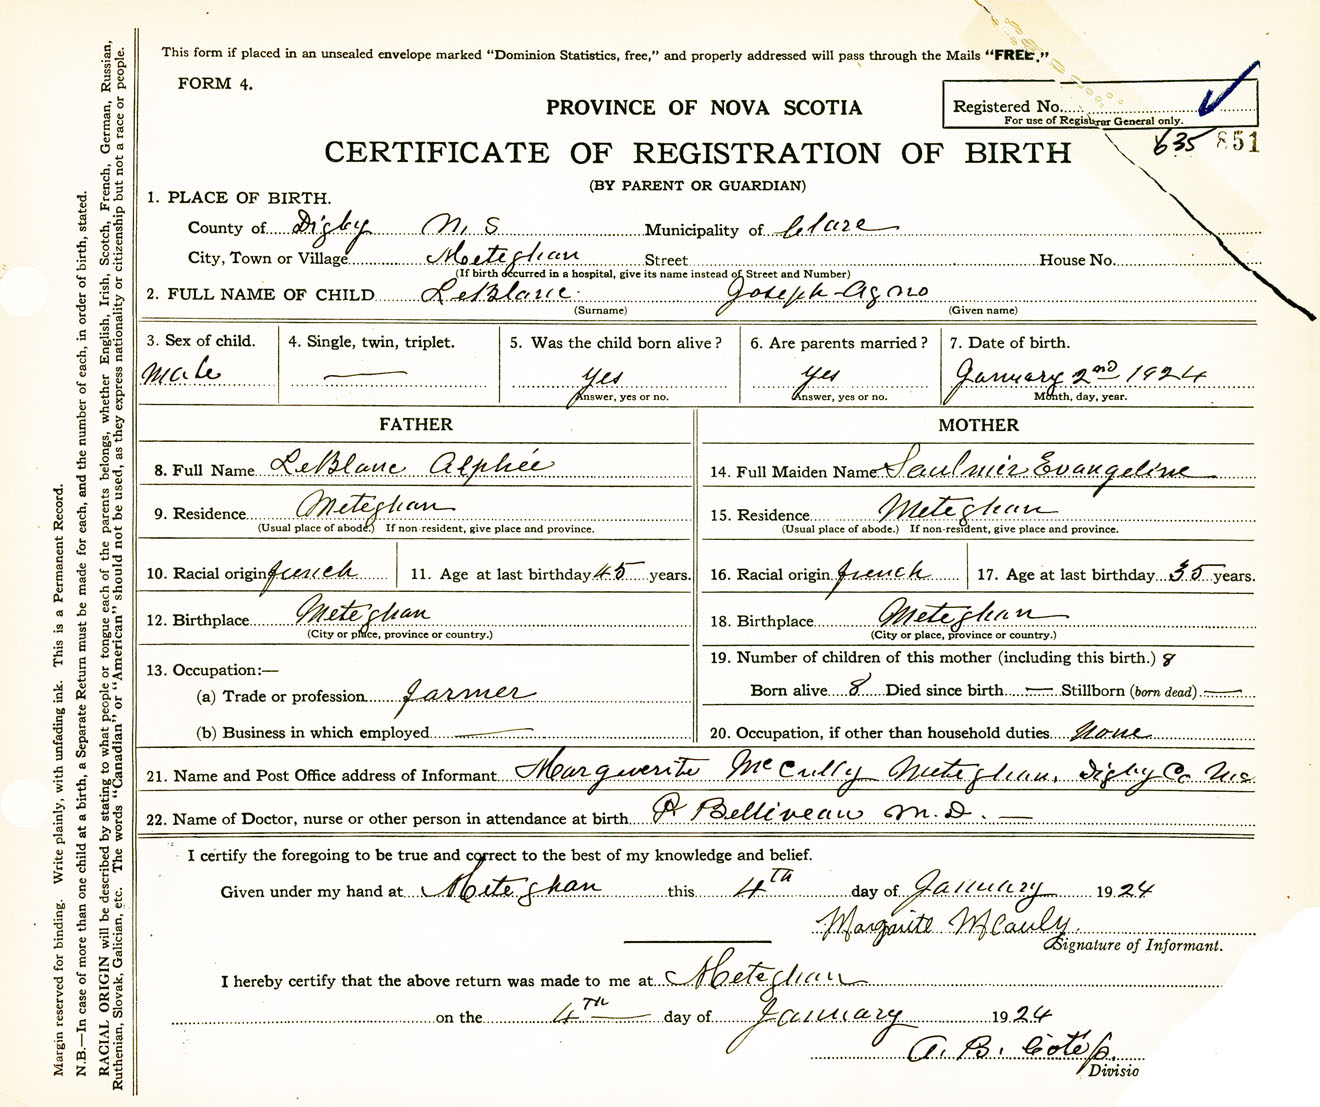 This form if placed in an unsealed envelope marked "Dominion Statistics, free," and properly addressed will pass through the Mails "FREE."
FORM 4.
PROVINCE OF NOVA SCOTIA
Registered No.
For use of Registrar General only.
635 851
CERTIFICATE OF REGISTRATION OF BIRTH
(BY PARENT OR GUARDIAN)
1. PLACE OF BIRTH.
County of Digby N. S Municipality of Clare
City, Town or Village Meteghan Street House No.
(If birth occurred in a hospital, give its name instead of Street and Number)
2. FULL NAME OF CHILD LeBlanc Joseph-Agno
(Surname) (Given name)
3. Sex of child. 4. Single, twin, triplet. 5. Was the child born alive? 6. Are parents married? 7. Date of birth.
Male — yes yes January 2nd 1924
Answer, yes or no. Answer, yes or no. Month, day, year.
FATHER
8. Full Name LeBlanc Alphée
9. Residence Meteghan
(Usual place of abode.) If non-resident, give place and province.
10. Racial origin french 11. Age at last birthday 45 years.
12. Birthplace Meteghan
(City or place, province or country.)
13. Occupation:—
(a) Trade or profession farmer
(b) Business in which employed —
MOTHER
14. Full Maiden Name Saulnier Evangeline
15. Residence Meteghan
(Usual place of abode.) If non-resident, give place and province.
16. Racial origin french 17. Age at last birthday 35 years.
18. Birthplace Meteghan
(City or place, province or country.)
19. Number of children of this mother (including this birth.) 8
Born alive 8 Died since birth — Stillborn (born dead) —
20. Occupation, if other than household duties none
21. Name and Post Office address of Informant Marguerite McCully Meteghan, Digby Co Ns
22. Name of Doctor, nurse or other person in attendance at birth P Belliveau M.D. —
I certify the foregoing to be true and correct to the best of my knowledge and belief.
Given under my hand at Meteghan this 4TH day of January 1924
Margarite McCauly
Signature of Informant.
I hereby certify that the above return was made to me at Meteghan
on the 4TH day of January 1924
A. B. Coté
Divisio
Margin reserved for binding. Write plainly, with unfading ink. This is a Permanent Record.
N.B.—In case of more than one child at a birth, a Separate Return must be made for each, and the number of each, in order of birth, stated.
RACIAL ORIGIN will be described by stating to what people or tongue each of the parents belongs, whether English, Irish, Scotch, French, German, Russian,
Ruthenian, Slovak, Galician, etc. The words "Canadian" or "American" should not be used, as they express nationality or citizenship but not a race or people.